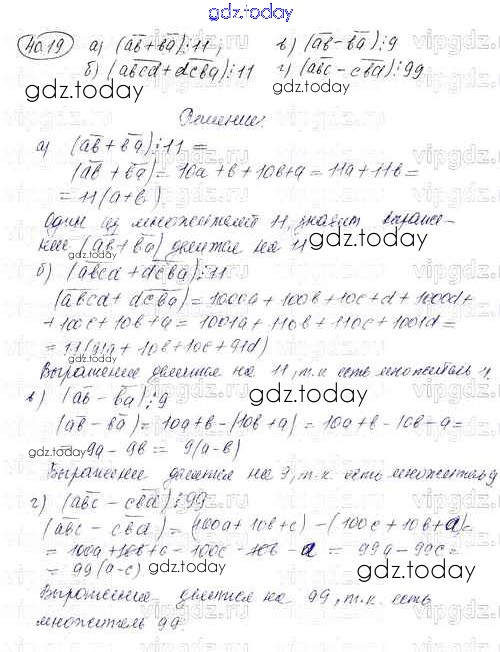 gdz.today
40.19 а) (ab+ba)⋮11; в) (ab-ba)⋮9
б) (abcd+dcba)⋮11 г) (abc-cba)⋮99
gdz.today gdz.today
Решение:
а) (ab+ba)⋮11 =
(ab+ba) = 10a+b+10b+a = 11a+11b =
= 11(a+b)
gdz.today
Один из множителей 11, значит выраже-
ние (ab+ba) делится на 11
gdz.today
б) (abcd+dcba)⋮11
(abcd+dcba) = 1000a+100b+10c+d+1000d+
+100c+10b+a = 1001a+110b+110c+1001d =
= 11(91a+10b+10c+91d)
gdz.today
Выражение делится на 11, т.к есть множитель 11
в) (ab-ba)⋮9
gdz.today
(ab-ba) = 10a+b-(10b+a) = 10a+b-10b-a =
gdz.today
= 9a-9b = 9(a-b)
Выражение делится на 9, т.к. есть множитель 9
г) (abc-cba)⋮99
gdz.today
(abc-cba) = (100a+10b+c)-(100c+10b+a) =
= 100a+10b+c-100c-10b-a = 99a-99c =
= 99(a-c)
gdz.today
Выражение делится на 99, т.к. есть
множитель 99
gdz.today